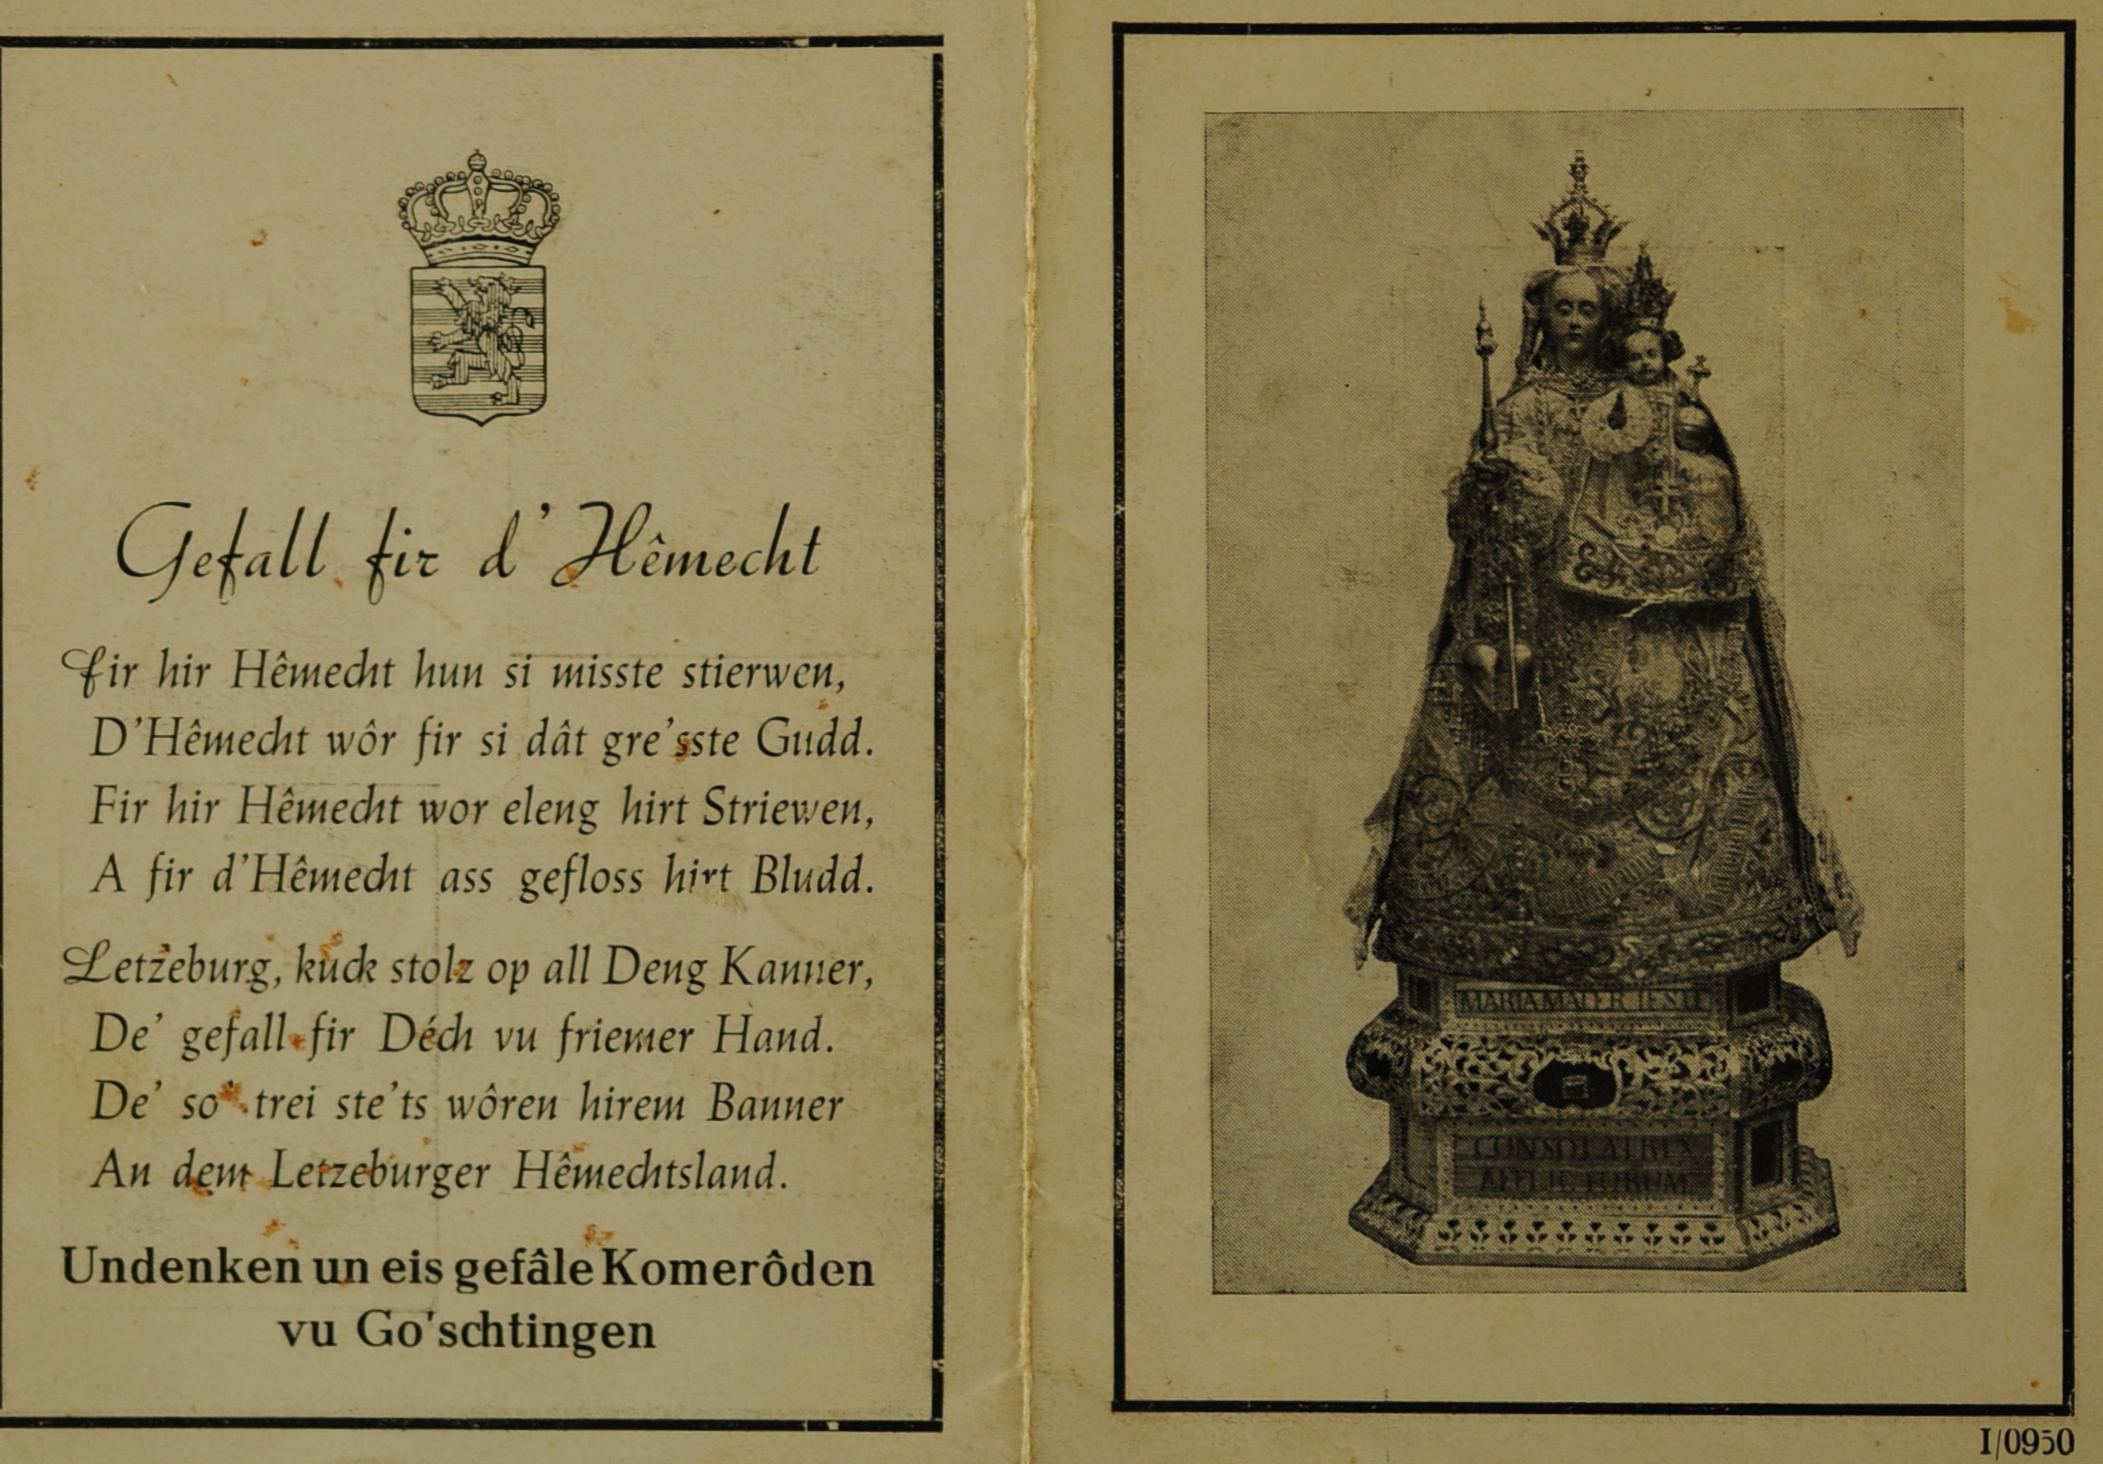 Gefall fir d'Hêmecht
Fir hir Hêmecht hun si misste stierwen,
D'Hêmecht wôr fir si dât gre'sste Gudd.
Fir hir Hêmecht wor eleng hirt Striewen,
A fir d'Hêmecht ass gefloss hirt Bludd.
Letzeburg, kuck stolz op all Deng Kanner,
De' gefall fir Déch vu friemer Hand.
De' so' trei ste'ts wôren hirem Banner
An dem Letzeburger Hêmechtsland.
Undenken un eis gefâle Komerôden
vu Go'schtingen
MARIA MATER JESU
CONSOLATRIX
AFFLICTORUM
I/0950